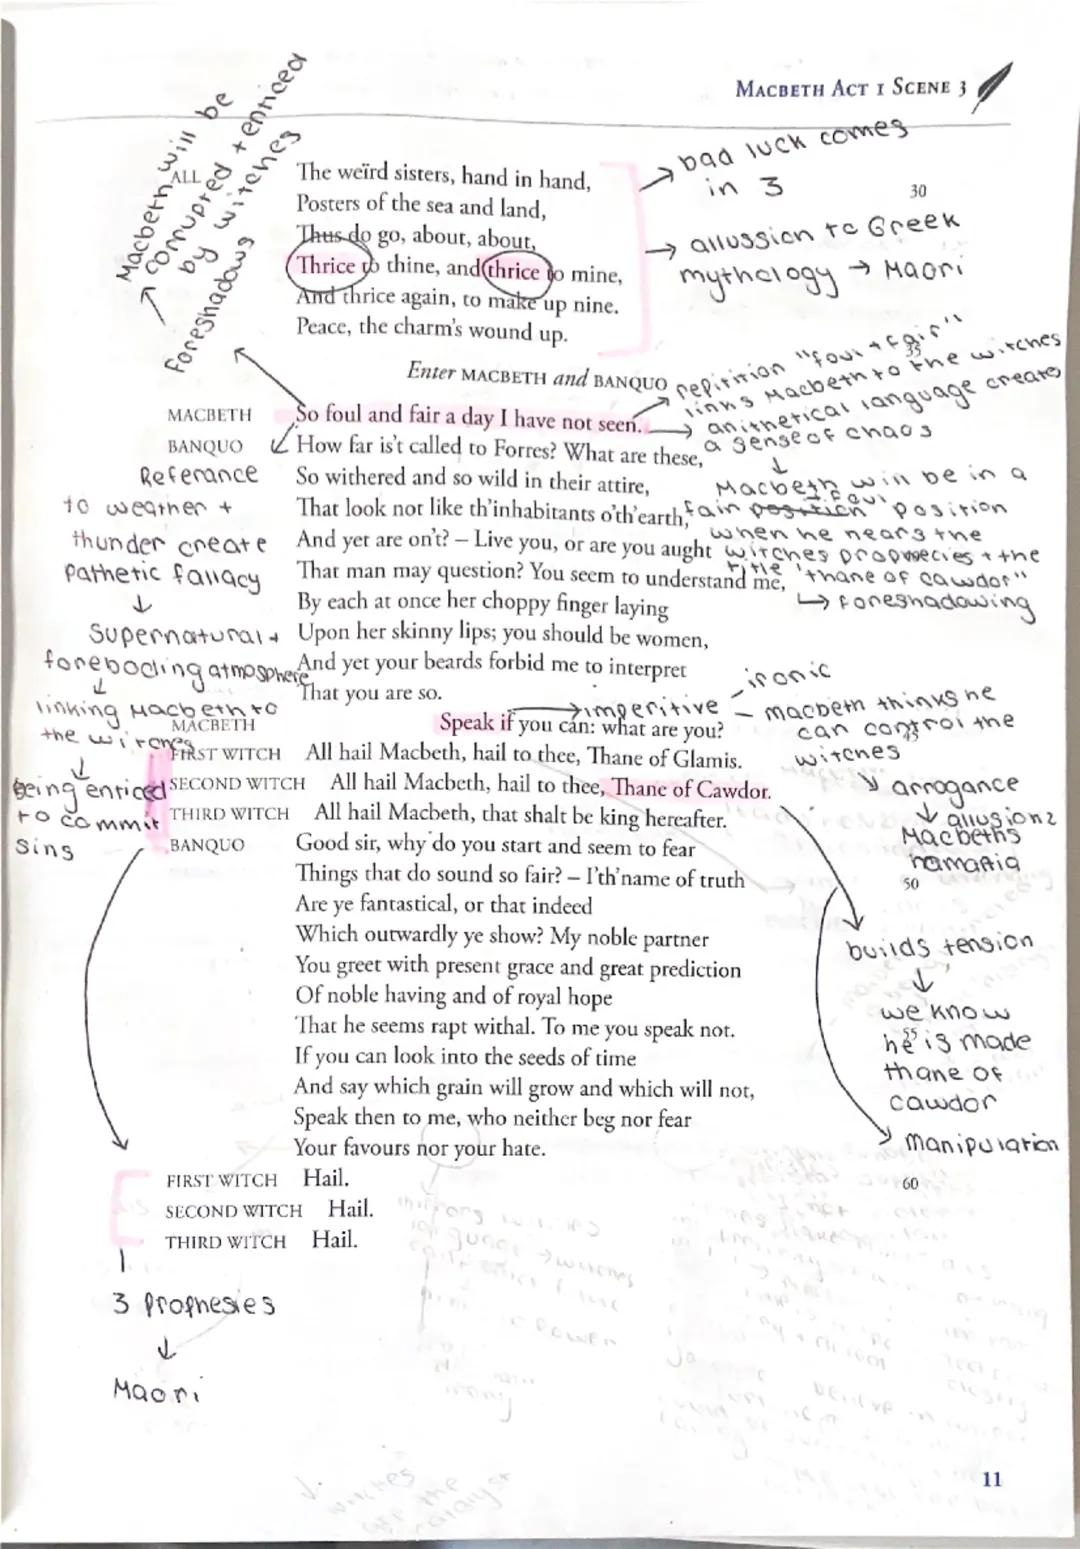 MACBETH ACT 1 SCENE 3
Macbeth will be
corrupted + enticed
by witches
foreshadows
ALL The weïrd sisters, hand in hand,
Posters of the sea and land,
Thus do go, about, about,
Thrice to thine, and thrice to mine,
And thrice again, to make up nine.
Peace, the charm's wound up.
30
→ bad luck comes
in 3
→ allussion to Greek
mythology → Maori
Enter MACBETH and BANQUO
MACBETH So foul and fair a day I have not seen.
BANQUO How far is't called to Forres? What are these,
So withered and so wild in their attire,
That look not like th'inhabitants o'th'earth,
And yet are on't? – Live you, or are you aught
That man may question? You seem to understand me,
By each at once her choppy finger laying
Upon her skinny lips; you should be women,
And yet your beards forbid me to interpret
That you are so.
35
repitition "foul + fair"
links Macbeth to the witches
→ anithetical language creates
a sense of chaos
↓
Macbeth will be in a
fair position foul position
when he nears the
witches propmecies + the
title 'thane of cawdor"
↳ foreshadowing
Referance
to weather +
thunder create
pathetic fallacy
↓
Supernatural +
foreboding atmosphere
↓
linking Macbeth to
the witches
↓
being enticed
to commit
sins
MACBETH Speak if you can: what are you?
FIRST WITCH All hail Macbeth, hail to thee, Thane of Glamis.
SECOND WITCH All hail Macbeth, hail to thee, Thane of Cawdor.
THIRD WITCH All hail Macbeth, that shalt be king hereafter.
BANQUO Good sir, why do you start and seem to fear
Things that do sound so fair? – I'th'name of truth
Are ye fantastical, or that indeed
Which outwardly ye show? My noble partner
You greet with present grace and great prediction
Of noble having and of royal hope
That he seems rapt withal. To me you speak not.
If you can look into the seeds of time
And say which grain will grow and which will not,
Speak then to me, who neither beg nor fear
Your favours nor your hate.
→ imperitive
– ironic
– macbeth thinks he
can control the
witches
↘ arrogance
↓ allusion 2
Macbeths
hamartia
50
builds tension
↓
we know
he is made
thane of
cawdor
55
manipulation
60
FIRST WITCH Hail.
SECOND WITCH Hail.
THIRD WITCH Hail.
3 Prophesies
↓
Maori
11